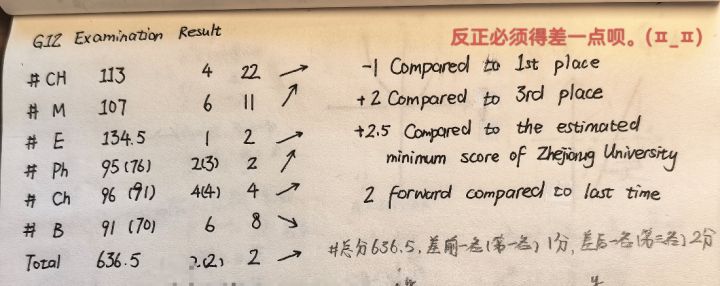 G12 Examination Result
反正必须得差一点呗。(ㅍ_ㅍ)
# CH 113 4 22 → -1 Compared to 1st place
# M 107 6 11 ↗ +2 Compared to 3rd place
# E 134.5 1 2 → +2.5 Compared to the estimated
# Ph 95(76) 2(3) 2 ↗ minimum score of Zhejiang University
# Ch 96 (91) 4(4) 4 → 2 forward compared to last time
# B 91 (70) 6 8 ↘
#总分636.5,差前一名(第一名)1分,差后一名(第三名)2分
Total 636.5 2(2) 2 →